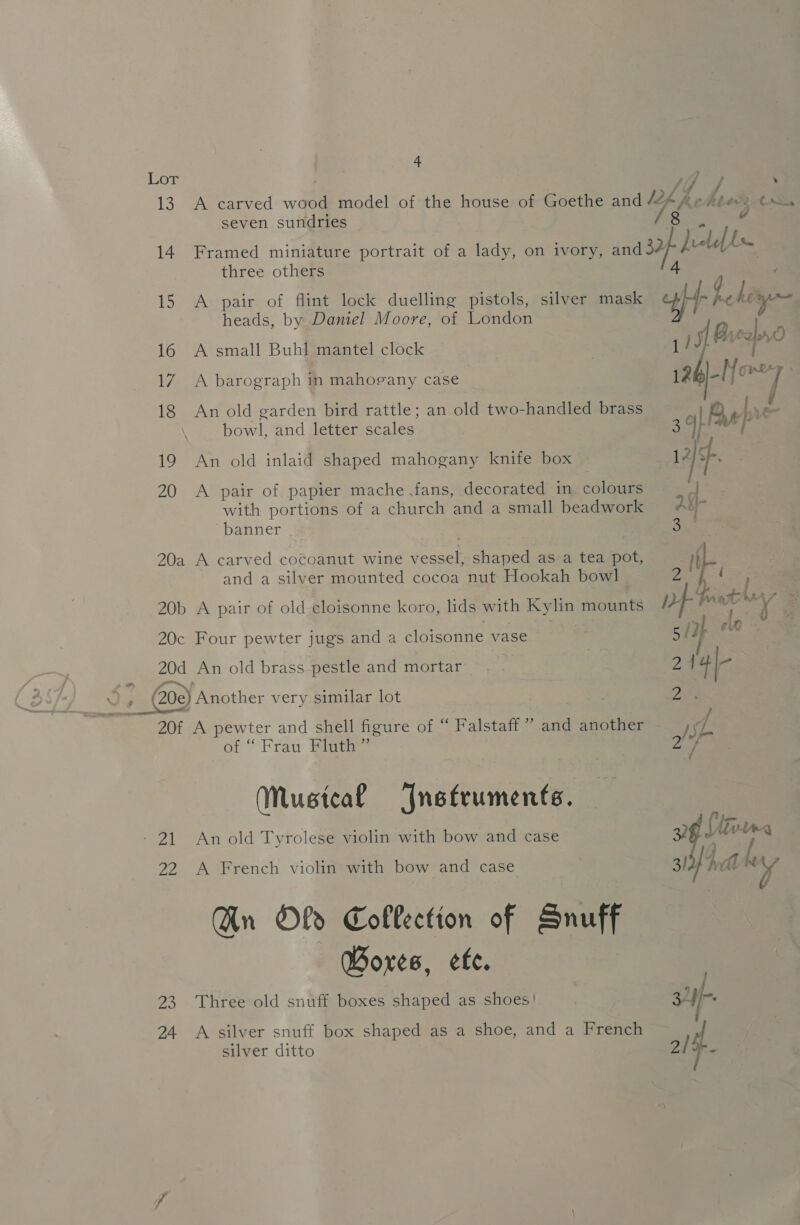 4
Lot
13 A carved wood model of the house of Goethe and
seven sundries 8
14 Framed miniature portrait of a lady, on ivory, and
three others 4
15 A pair of flint lock duelling pistols, silver mask
heads, by Daniel Moore, of London 2
16 A small Buhl mantel clock 1
17 A barograph in mahogany case 1
18 An old garden bird rattle; an old two-handled brass
bowl, and letter scales 3
19 An old inlaid shaped mahogany knife box 1
20 A pair of papier mache fans, decorated in colours
with portions of a church and a small beadwork
banner 3
20a A carved cocoanut wine vessel, shaped as a tea pot,
and a silver mounted cocoa nut Hookah bowl 2
20b A pair of old cloisonne koro, lids with Kylin mounts
20c Four pewter jugs and a cloisonne vase 5
20d An old brass pestle and mortar 2
20e Another very similar lot 2
20f A pewter and shell figure of “ Falstaff ” and another
of “ Frau Fluth ” 2
Musical Instruments.
21 An old Tyrolese violin with bow and case
22 A French violin with bow and case 3
An Old Collection of Snuff
Boxes, etc.
23 Three old snuff boxes shaped as shoes 3
24 A silver snuff box shaped as a shoe, and a French
silver ditto 2